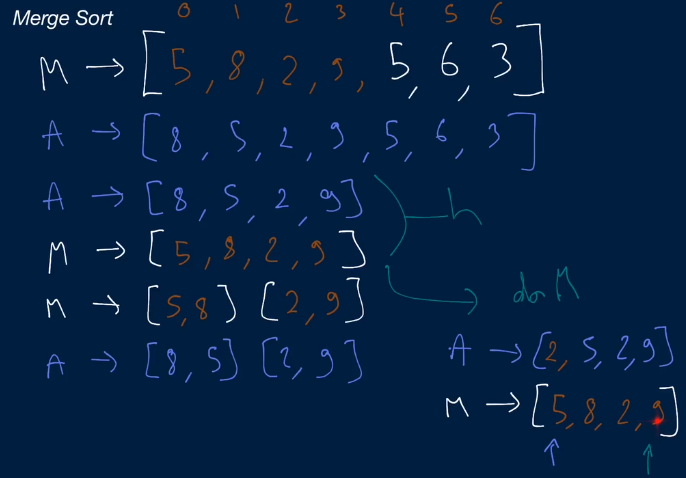 Merge Sort
0 1 2 3 4 5 6
M → [5, 8, 2, 9, 5, 6, 3]
A → [8, 5, 2, 9, 5, 6, 3]
A → [8, 5, 2, 9]
h
M → [5, 8, 2, 9]
M → [5,8] [2,9]
A → [8,5] [2,9]
A → [2, 5, 2, 9]
M → [5, 8, 2, 9]